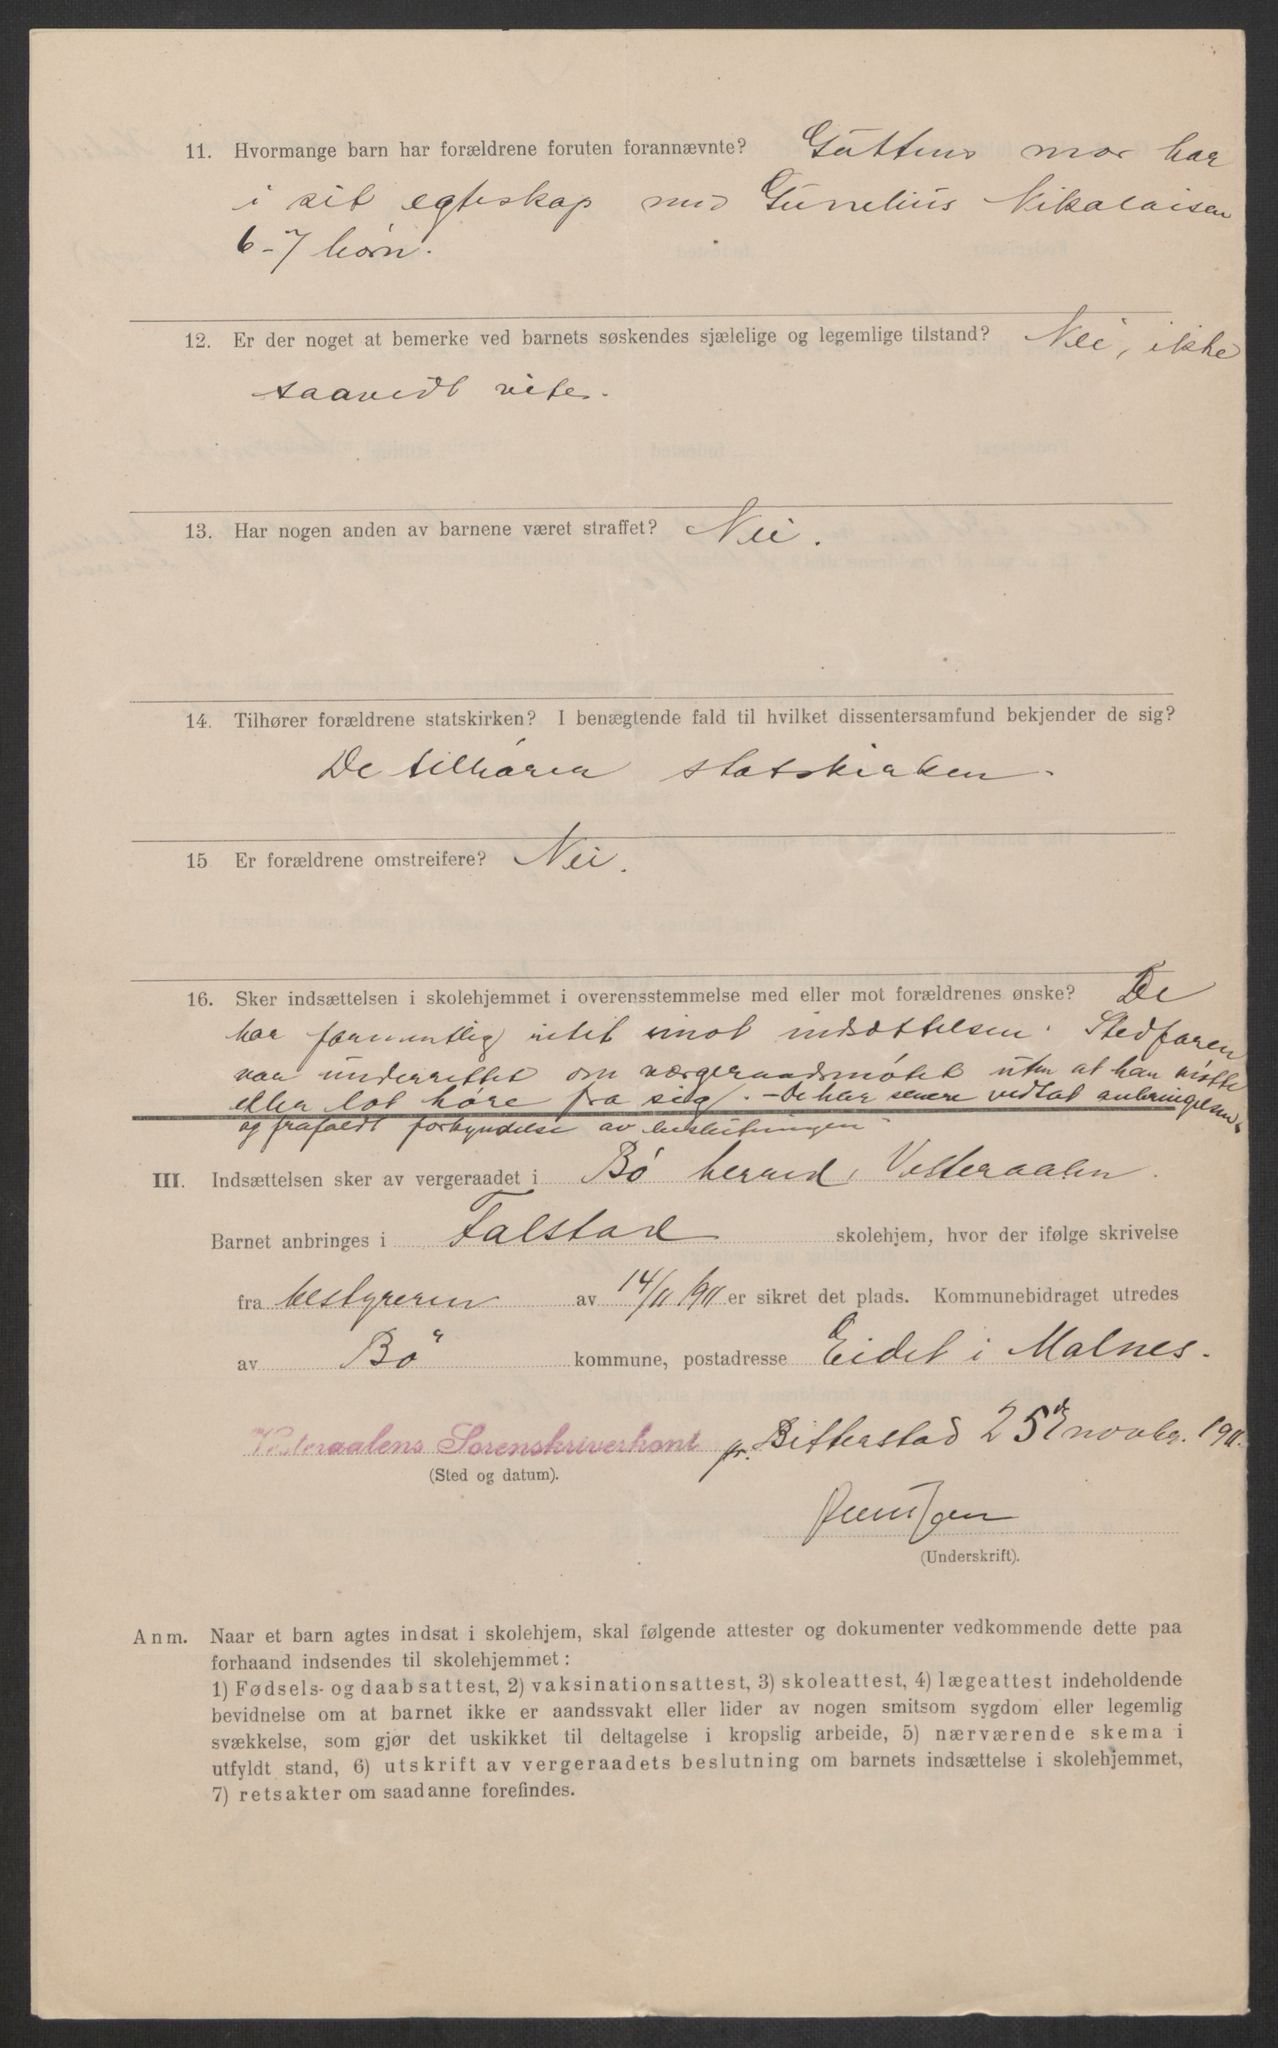 11. Hvormange barn har forældrene foruten forannævnte? Guttens mor har
i sit egteskap med Gunelius Nikolaisen
6-7 børn.
12. Er der noget at bemerke ved barnets søskendes sjælelige og legemlige tilstand? Nei, ikke
saavidt vites.
13. Har nogen anden av barnene været straffet? Nei.
14. Tilhører forældrene statskirken? I benægtende fald til hvilket dissentersamfund bekjender de sig?
De tilhører statskirken.
15 Er forældrene omstreifere? Nei.
16. Sker indsættelsen i skolehjemmet i overensstemmelse med eller mot forældrenes ønske? De
har formentlig intet imot indsættelsen. Stedfaren
var underrettet om værgeraadsmøtet uten at han møtte
eller lot høre fra sig. - De har senere vedtat anbringelsen
og frafaldt forkyndelse av beslutningen
III. Indsættelsen sker av vergeraadet i Bø herred, Vesteraalen.
Barnet anbringes i Falstad skolehjem, hvor der ifølge skrivelse
fra bestyreren av 14/11 1911 er sikret det plads. Kommunebidraget utredes
av Bø kommune, postadresse Eidet i Malnes.
Vesteraalens Sorenskriverkont pr. Bitterstad 25 novbr. 1911.
(Sted og datum).
(Underskrift).
Anm. Naar et barn agtes indsat i skolehjem, skal følgende attester og dokumenter vedkommende dette paa
forhaand indsendes til skolehjemmet:
1) Fødsels- og daabsattest, 2) vaksinationsattest, 3) skoleattest, 4) lægeattest indeholdende
bevidnelse om at barnet ikke er aandssvakt eller lider av nogen smitsom sygdom eller legemlig
svækkelse, som gjør det uskikket til deltagelse i kropslig arbeide, 5) nærværende skema i
utfyldt stand, 6) utskrift av vergeraadets beslutning om barnets indsættelse i skolehjemmet,
7) retsakter om saadanne forefindes.